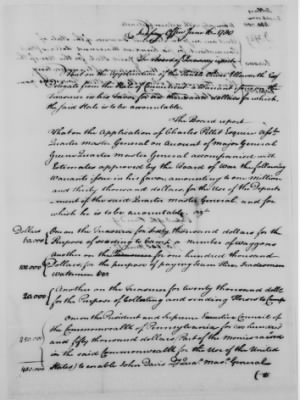 Treasury Office June 10. 1780
The Board of Treasury report
That on the Application of the Honble Oliver Ellsworth Esqr
Delegate from the State of Connecticut a Warrant issue on the
Treasurer in his favor for thousand dollars for which
the said State is to be accountable.
The Board report
That on the Application of Charles Pettit Esquire Asst
Quarter Master General on account of Major General
Greene Quarter Master General accompanied with
Estimates approved by the Board of War the following
Warrants issue in his favor amounting to one million
and thirty thousand dollars for the Use of the Depart-
ment of the said Quarter Master General and for
which he is to be accountable
Dollars
One on the Treasurer for sixty thousand dollars for the
60,000
Purpose of sending to Camp a number of Waggons
Another on the Treasurer for one hundred thousand
100.000
Dollars for the purpose of paying Teams Hire Tradesmen
Watermen &c
20.000
Another on the Treasurer for twenty thousand dolls
for the Purpose of Collating and sending Horses to Camp
One on the President and Supreme Executive Council of
the Commonwealth of Pennsylvania for two hundred
250.000
and fifty thousand dollars Part of the monies raised
in the said Commonwealth for the Use of the United
States to enable John Davis Quar. Mas. General